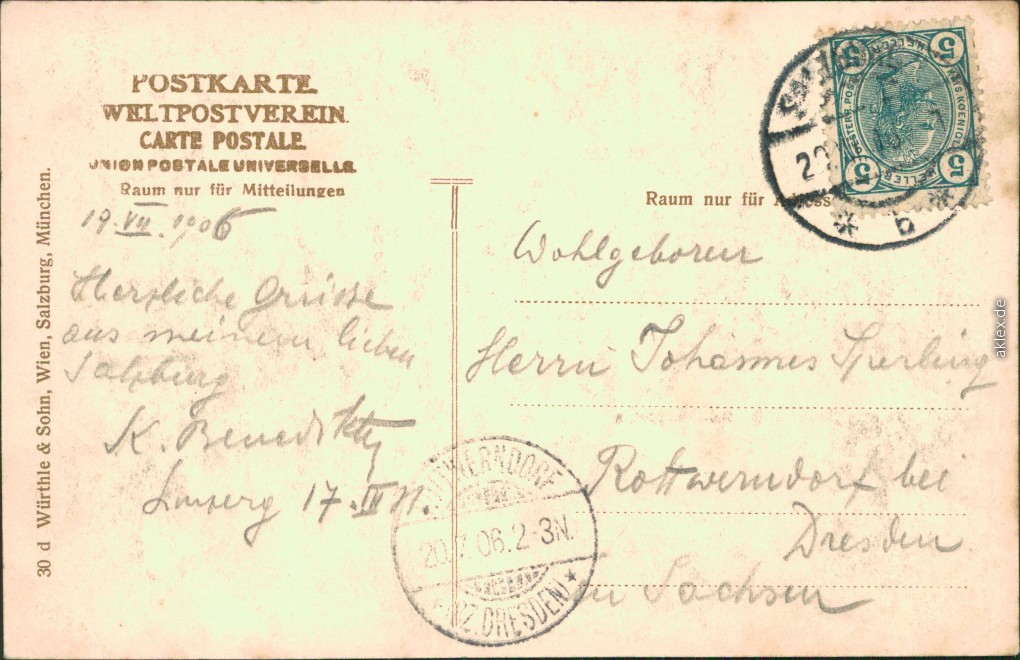 POSTKARTE.
WELTPOSTVEREIN.
CARTE POSTALE.
UNION POSTALE UNIVERSELLE.
Raum nur für Mitteilungen
19. VII. 1906
Herzliche Grüsse
aus meinem lieben
Salzburg
K. Benedikty
17. III
30 d Würthle & Sohn, Wien, Salzburg, München.
Raum nur für
Wohlgeboren
Herrn Johannes Sperling
Rottwerndorf bei
Dresden
in Sachsen
ROTTWERNDORF
20.7.06.2-3N.
DRESDEN)
5 5
5 5
HELLER
b
aklex.de